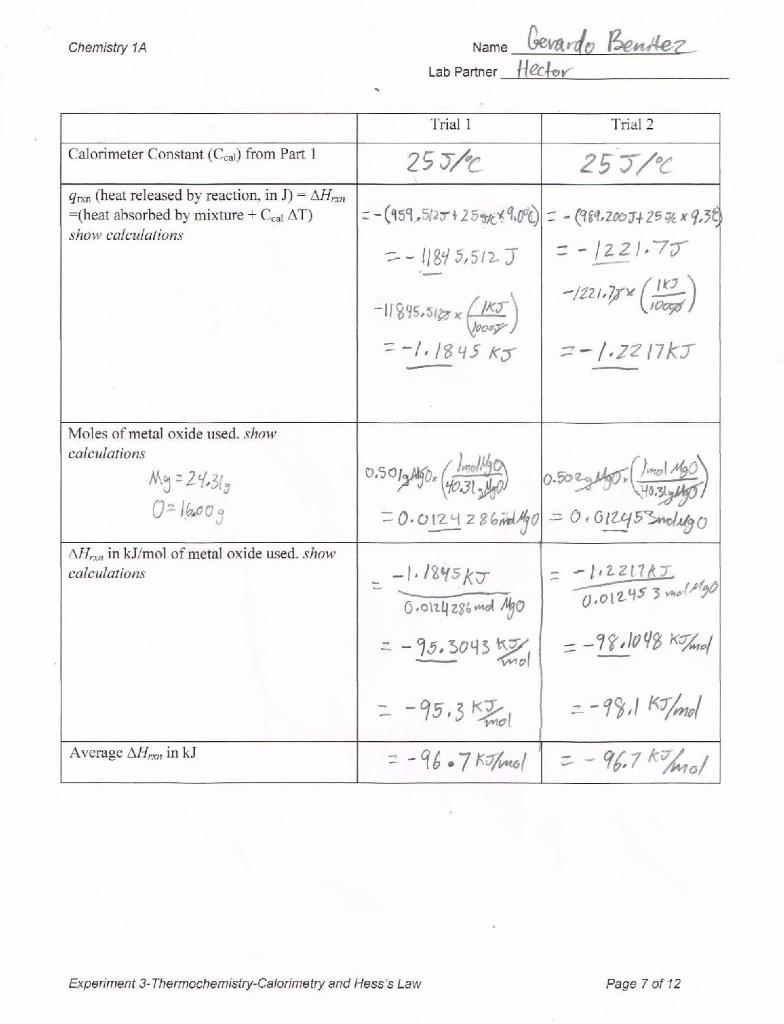 Chemistry 1A
Name Gerardo Benitez
Lab Partner Hector
Trial 1 Trial 2
Calorimeter Constant (Ccal) from Part 1 25 J/°C 25 J/°C
qrxn (heat released by reaction, in J) = ΔHrxn
=(heat absorbed by mixture + Ccal ΔT)
show calculations
= -(959.512J + 25 J/°C x 9.0°C)
= - 11845,512 J
-11845.512J x (1KJ/1000J)
= -1.1845 KJ
= - (989.200J + 25 J/°C x 9.3°C)
= - 1221.7J
-1221.7J x (1KJ/1000J)
= -1.2217KJ
Moles of metal oxide used. show
calculations
Mg = 24.31g
O = 16.00g
0.501g MgO x (1mol MgO/40.31g MgO)
= 0.0124286 mol MgO
0.502g MgO x (1mol MgO/40.31g MgO)
= 0.012453mol MgO
ΔHrxn in kJ/mol of metal oxide used. show
calculations
= -1.1845KJ / 0.0124286 mol MgO
= -95.3043 KJ/mol
= -95.3 KJ/mol
= -1.2217KJ / 0.012453 mol MgO
= -98.1048 KJ/mol
= -98.1 KJ/mol
Average ΔHrxn in kJ = -96.7 KJ/mol = -96.7 KJ/mol
Experiment 3-Thermochemistry-Calorimetry and Hess's Law Page 7 of 12